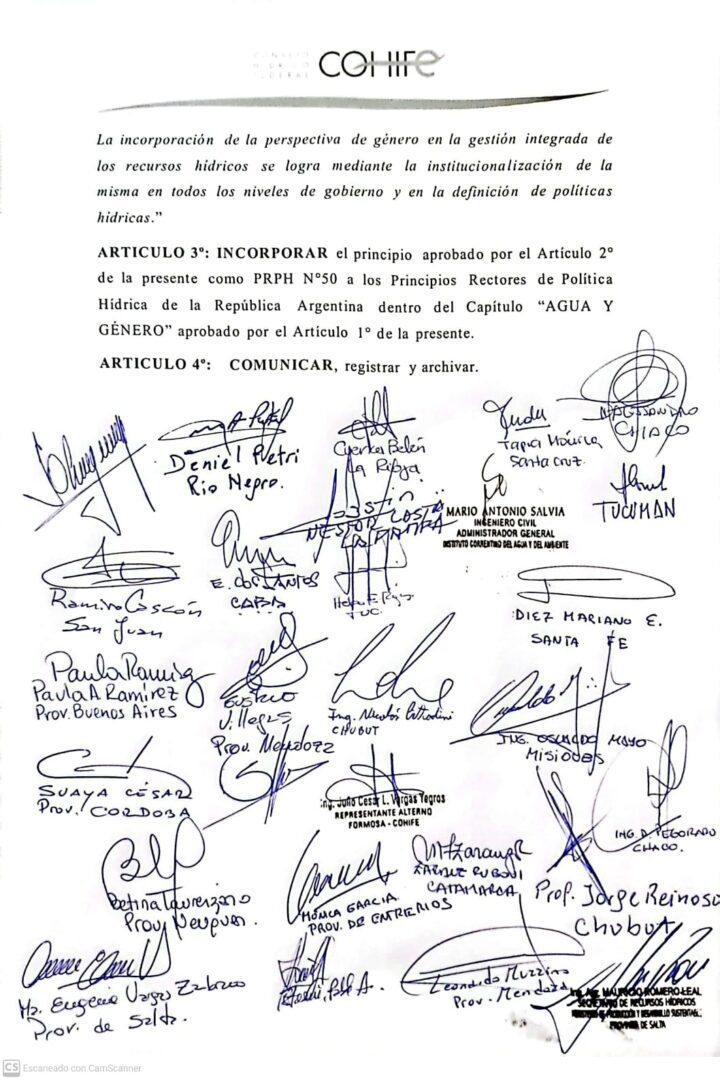 CONSEJO
HIDRICO
FEDERAL
COHIFE
La incorporación de la perspectiva de género en la gestión integrada de
los recursos hídricos se logra mediante la institucionalización de la
misma en todos los niveles de gobierno y en la definición de políticas
hídricas.”
ARTICULO 3º: INCORPORAR el principio aprobado por el Artículo 2º
de la presente como PRPH Nº50 a los Principios Rectores de Política
Hídrica de la República Argentina dentro del Capítulo “AGUA Y
GÉNERO” aprobado por el Artículo 1º de la presente.
ARTICULO 4º: COMUNICAR, registrar y archivar.
Daniel Petri
Río Negro.
Belén
La Rioja
Tapia Mónica
Santa Cruz.
CHACO
TUCUMAN
NESTOR LASTA
LA PAMPA
MARIO ANTONIO SALVIA
INGENIERO CIVIL
ADMINISTRADOR GENERAL
INSTITUTO CORRENTINO DEL AGUA Y DEL AMBIENTE
E. DOS SANTOS
CABA
TUC.
Ramiro Cascón
San Juan
DIEZ MARIANO E.
SANTA FE
Paula A Ramirez
Prov. Buenos Aires
GUSTAVO
Villegas
Prov. Mendoza
Ing. Nicolás
CHUBUT
ING. OSVALDO MAYO
MISIONES
SUAYA CÉSAR
Prov. CORDOBA
Ing. Julio Cesar L. Vargas Yegros
REPRESENTANTE ALTERNO
FORMOSA - COHIFE
ING. D. PEGORARO
CHACO.
Betina Laurenzano
Prov Neuquen.
MÓNICA GARCIA
PROV. DE ENTRE RIOS
CATAMARCA
Prof. Jorge Reinoso
Chubut
Ma. Eugenia Vargas
Prov. de Salta.
Leonardo Muzzino
Prov. Mendoza
Ing. Agr. MAURICIO ROMERO LEAL
SECRETARIO DE RECURSOS HÍDRICOS
MINISTERIO DE PRODUCCIÓN Y DESARROLLO SUSTENTABLE
PROVINCIA DE SALTA
CS Escaneado con CamScanner